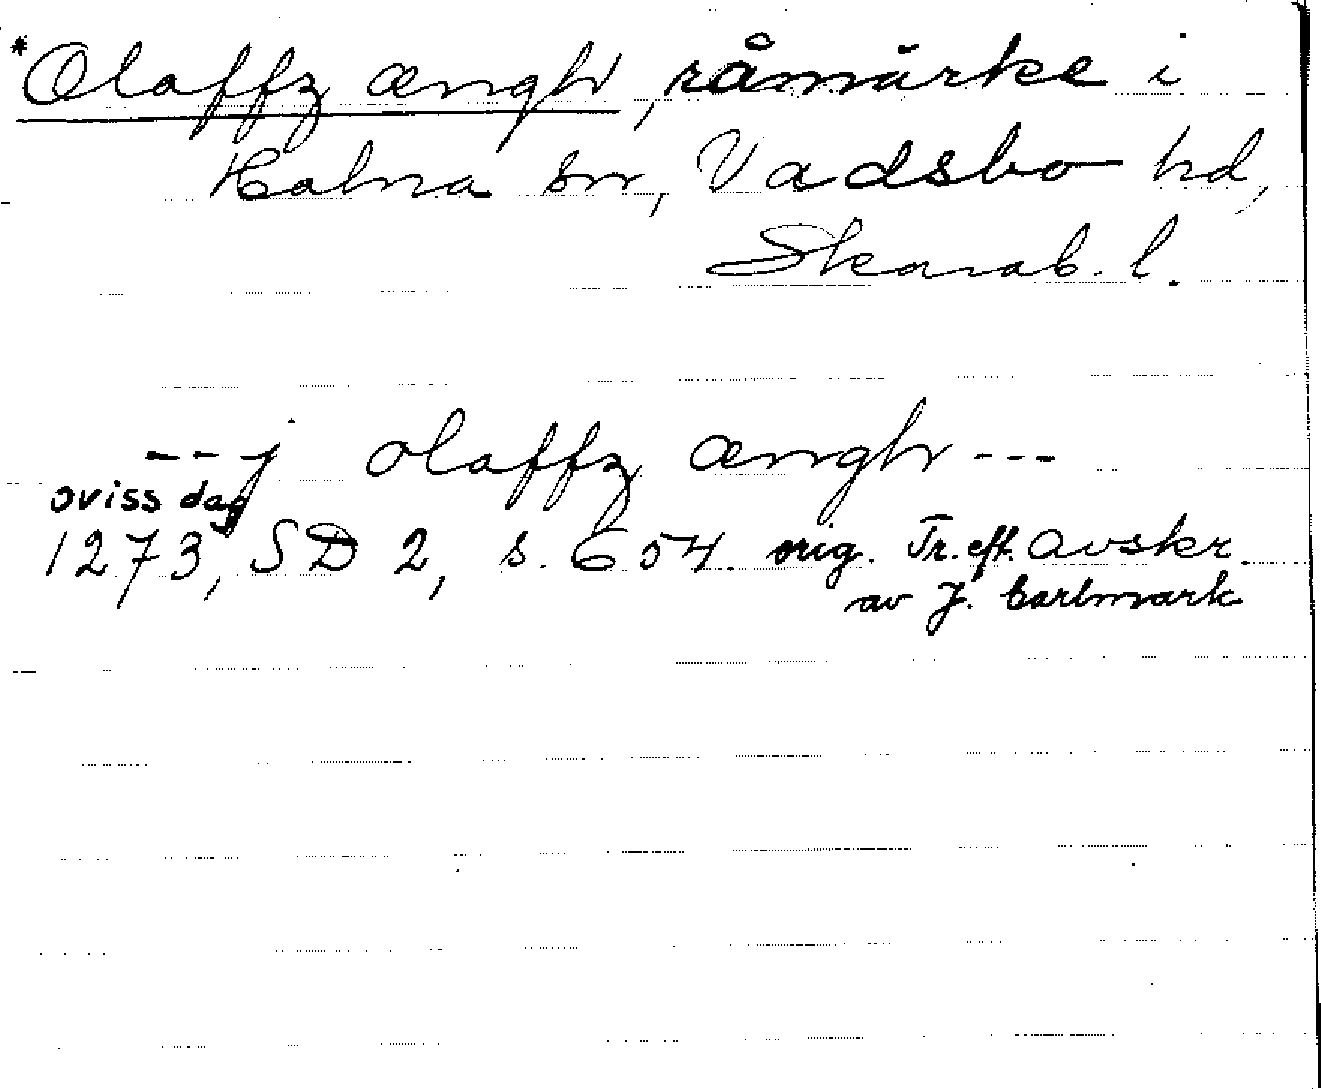 *Olaffz ængh, råmärke i
Halna sn, Vadsbo hd,
Skarab. l.
--- j olaffz ængh ---
oviss dag
1273, SD 2, s. 654. orig. Tr. eft. avskr.
av J. Carlmark